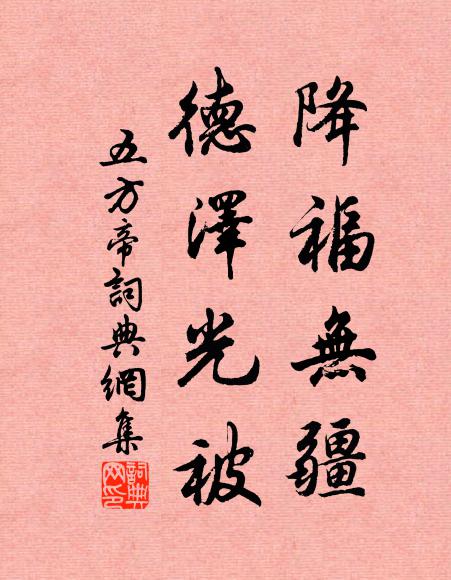 降福無疆
德澤光被
五方帝詞典網集
詞典
网印